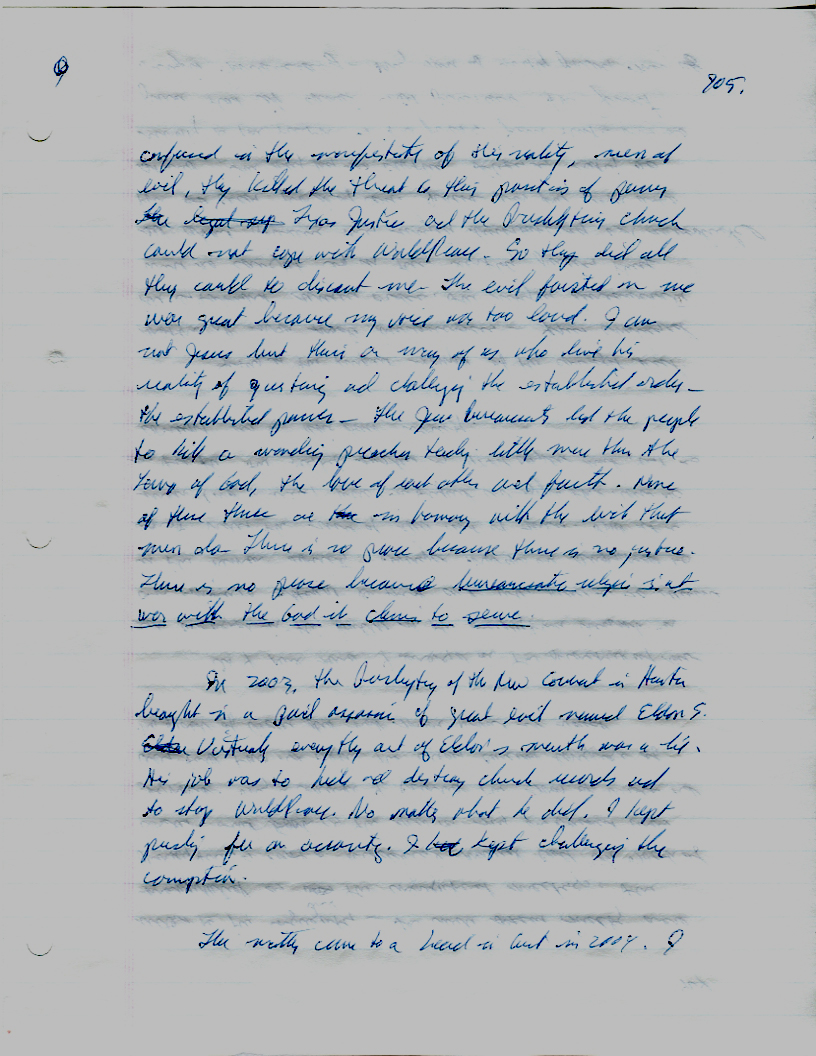 905.
confused in the of this reality, men of
evil, they killed the threat to their position of power
the legal Texas Justice and the Presbyterian church
could not cope with WorldPeace. So they did all
they could to discount me. The evil foisted on me
was great because my voice was too loud. I am
not Jesus but there are many of us who live his
reality of questioning and challenging the established order –
the established power – The Jew bureaucrats led the people
to kill a wandering preacher teaching little more than the
of God, the love of each other and faith. None
of these three are the in harmony with the evil that
men do. There is no peace because there is no justice.
There is no peace because bureaucratic religion is at
war with the God it claims to serve.
In 2003, the Presbytery of the New Covenant in Houston
brought in a paid assassin of great evil named Eldon G.
Elder Virtually everything out of Eldon's mouth was a lie.
His job was to hide and destroy church records and
to stop WorldPeace. No matter what he did, I kept
pushing for an accounting. I kept challenging the
corruption.
The matter came to a head in in 2004. I